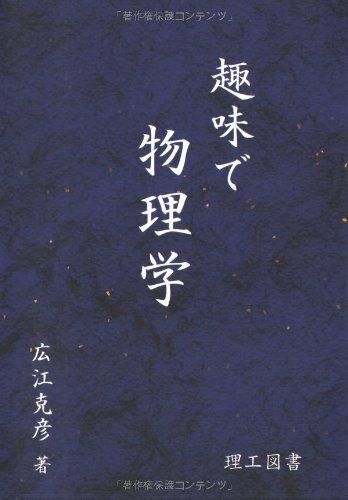 「著作権保護コンテンツ」
趣味で
物理学
広江克彦 著
理工図書
「著作権保護コンテンツ」